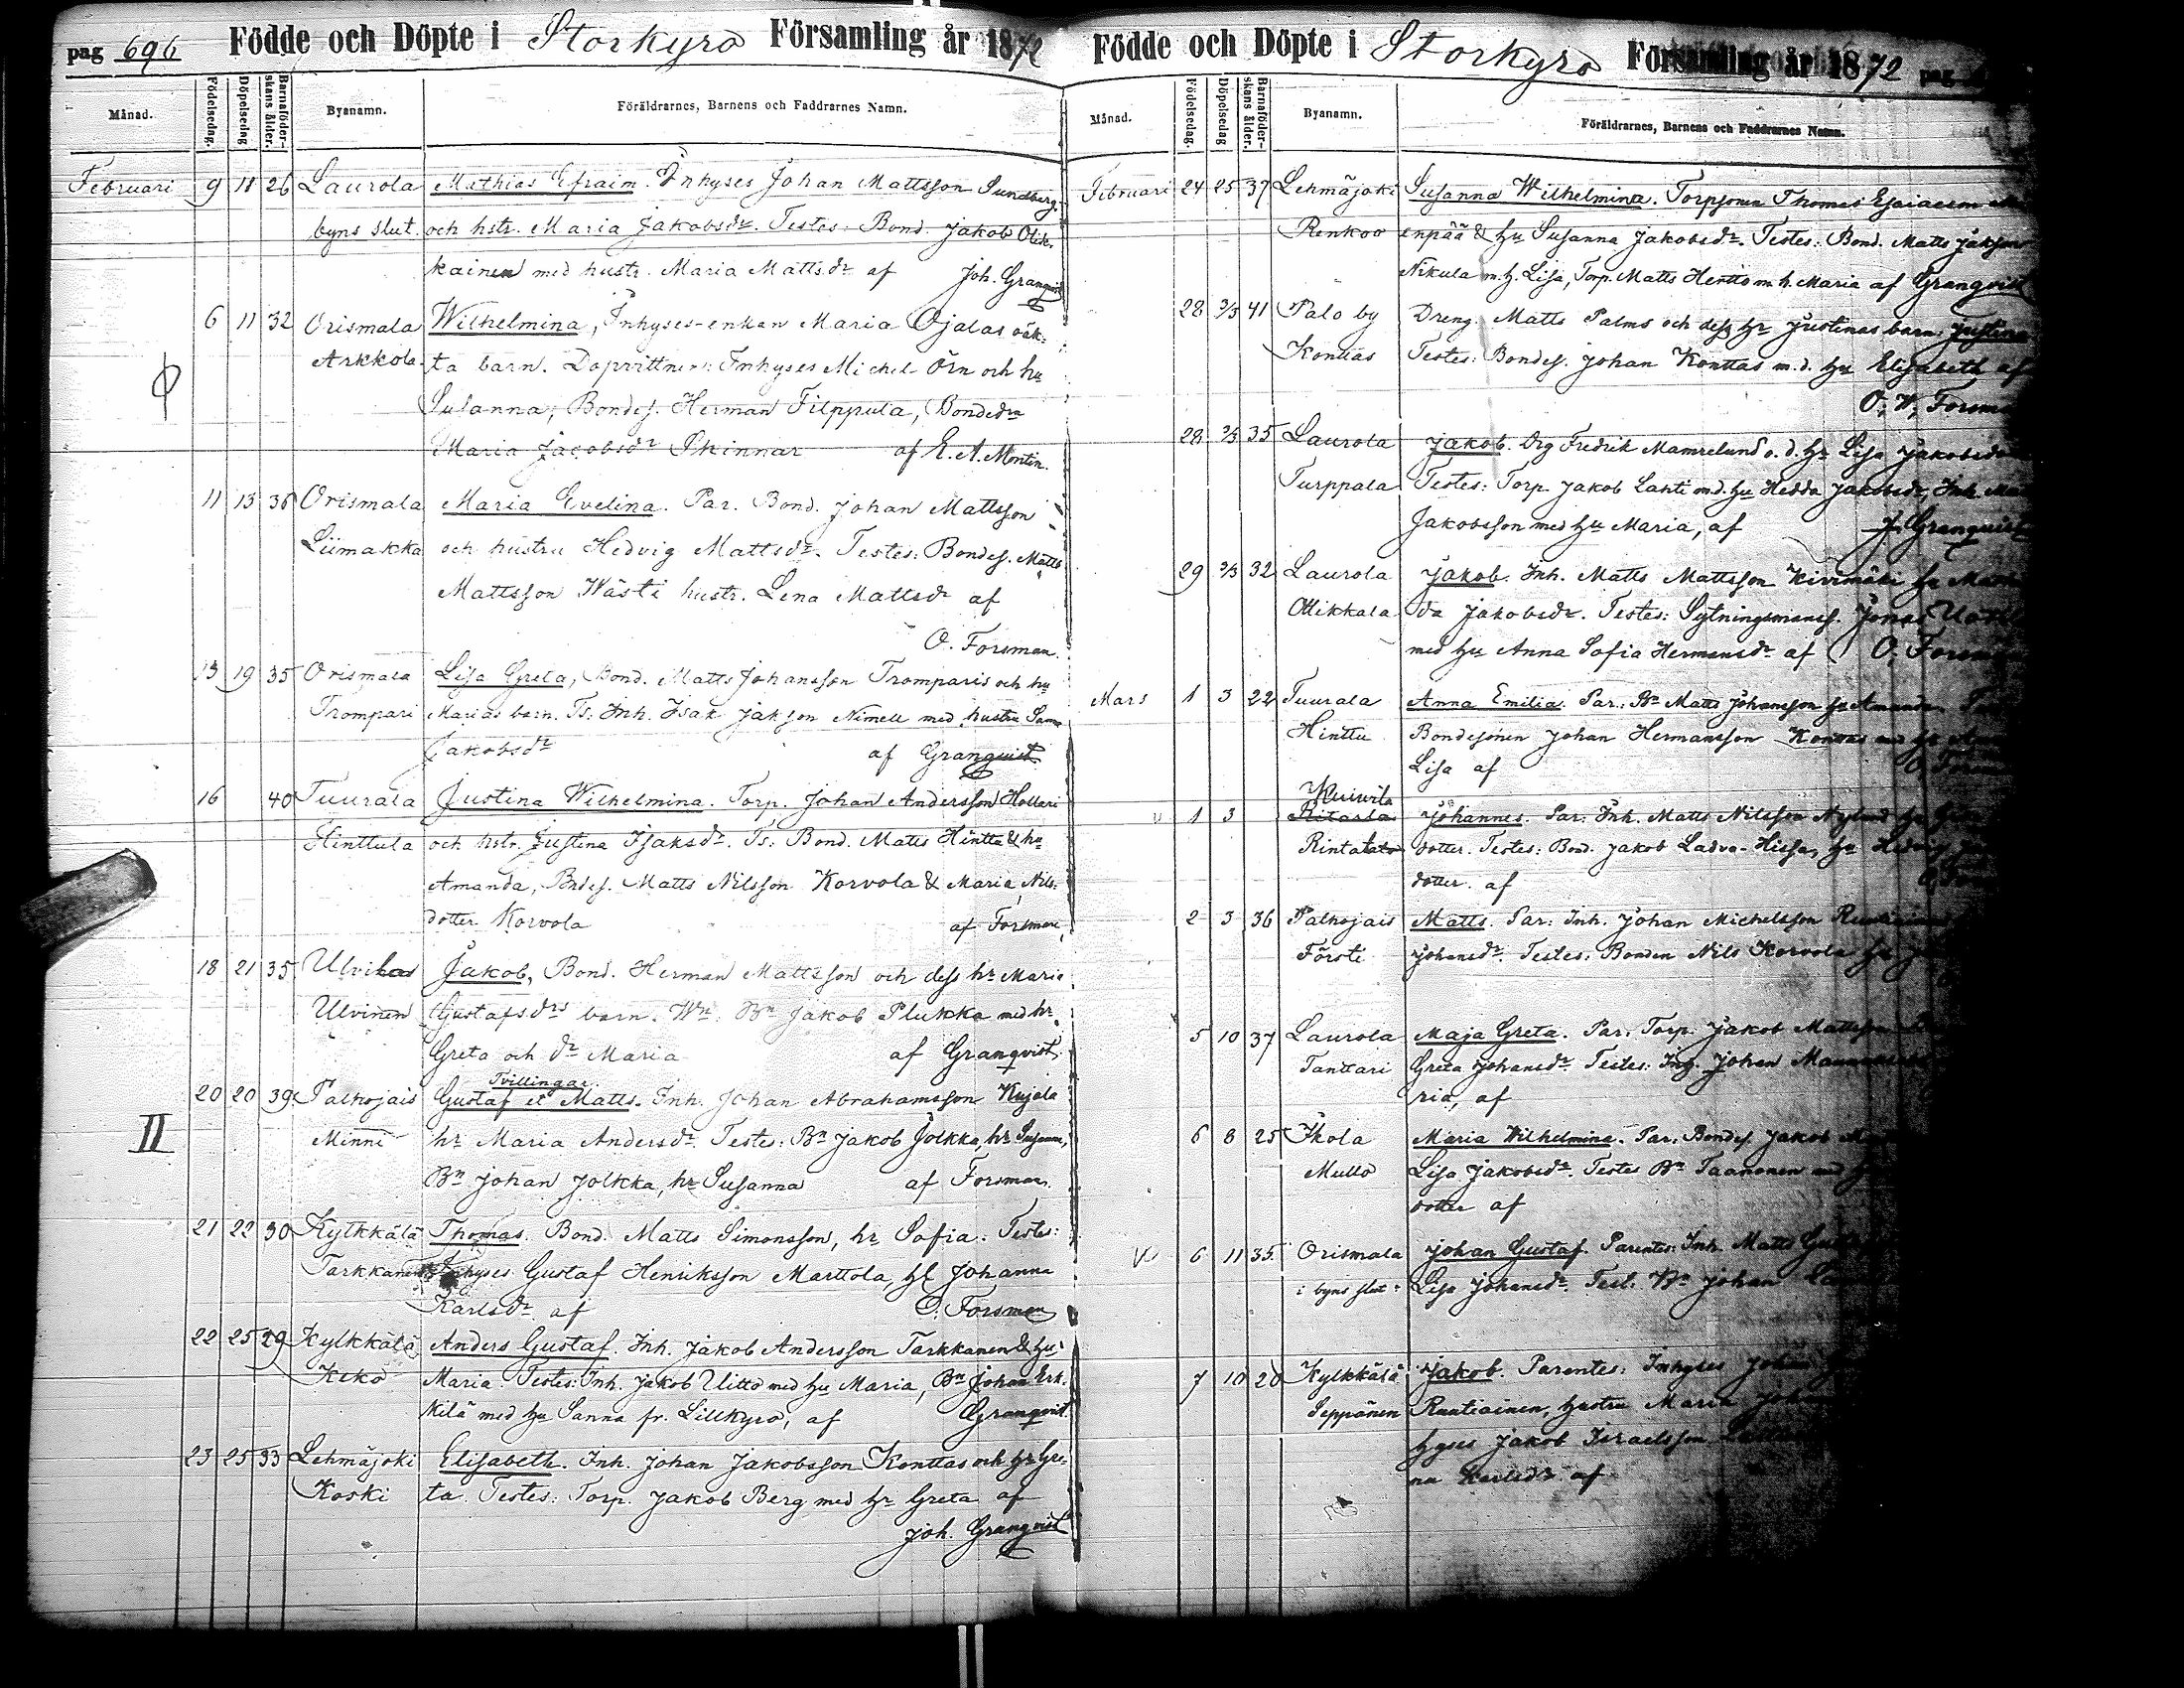 pag 696 Födde och Döpte i Storkyro Församling år 1872
Månad. Födelsedag. Döpelsedag Barnaföderskans ålder. Byanamn. Föräldrarnes, Barnens och Faddrarnes Namn.
Februari 9 18 26 Laurola Mathias Efraim. Inhyses Johan Mattsson Sundberg
byns slut. och hstr. Maria Jakobsdr. Testes: Bond. Jakob Olik-
kainen med hustr. Maria Mattsdr af Joh. Granqvist
6 11 32 Orismala Wilhelmina, Inhyses-enkan Maria Ojalas oäk-
Arkkola ta barn. Dopvittnen: Inhyses Michel Örn och hu
Susanna, Bondes. Herman Filppula, Bondedr
Maria Jacobsdr Skinnar af E. A. Montin.
11 13 36 Orismala Maria Evelina. Par. Bond. Johan Mattsson
Liimakka och hustru Hedvig Mattsdr. Testes: Bondes. Matts
Mattsson Wästi hustr. Lena Mattsdr af
O. Forsman.
13 19 35 Orismala Lisa Greta, Bond. Matts Johansson Tromparis och hu
Trompari Marias barn. Ts: Inh. Isak Jakson Nimell med hustru Sanna
Jakobsdr af Granqvist
16 40 Tuurala Justina Wilhelmina. Torp. Johan Andersson Hollari
Hinttula och hstr. Justina Isaksdr. Ts: Bond. Matts Hintta & hu
Amanda, Bndes. Matts Nilsson Korvola & Maria Nils-
dotter Korvola af Forsman
18 21 35 Ulvilas Jakob, Bond. Herman Mattsson och dess hr Maria
Ulvinen Gustafsdrs barn. Wn: Bn Jakob Plukka med hr
Greta och dr Maria af Granqvist
Tvillingar.
20 20 39 Palhojais Gustaf et Matts. Inh. Johan Abrahamsson Kujala
II Minni hr Maria Andersdr. Testes: Bn Jakob Jolkka, hr Susanna,
Bn Johan Jolkka, hr Susanna af Forsman.
21 22 30 Kylkkälä Thomas. Bond. Matts Simonsson, hr Sofia. Testes:
Tarkkanen Inhyses Gustaf Henriksson Marttola, hr Johanna
Karlsdr af O. Forsman
22 25 29 Kylkkälä Anders Gustaf. Inh. Jakob Andersson Tarkkanen & hu
Keko Maria. Testes: Inh. Jakob Uitto med hu Maria, Bn Johan Erk-
kilä med hu Sanna fr. Lillkyro, af Granqvist.
23 25 33 Lehmäjoki Elisabeth. Inh. Johan Jakobsson Konttas och hr Gre-
Koski ta. Testes: Torp. Jakob Berg med hr Greta af
Joh. Granqvist
Födde och Döpte i Storkyro Församling år 1872 pag
Månad. Födelsedag. Döpelsedag Barnaföderskans ålder. Byanamn. Föräldrarnes, Barnens och Faddrarnes Namn.
Februari 24 25 37 Lehmäjoki Susanna Wilhelmina. Torpsonen Thomas Esaiasson
Renkoo enpää & hu Susanna Jakobsdr. Testes: Bond. Matts Jakson
Nikula m. h. Lisa, Torp. Matts Hertto m. h. Maria af Granqvist
28 3/3 41 Palo by Dreng. Matts Palms och dess hr Justinas barn Justina
Konttas Testes: Bondes. Johan Konttas m. d. hu Elisabeth af
O. W. Forsman
28 2/3 35 Laurola Jakob. Drg Fredrik Mamrelund o. d. hr Lisa Jakobsdr
Turppala Testes: Torp. Jakob Lahti m. d. hu Hedda Jakobsdr, Inh.
Jakobsson med hu Maria, af J. Granqvist
29 2/3 32 Laurola Jakob. Inh. Matts Mattsson Kivimäki hu
Olikkala da Jakobsdr. Testes: Sytningsmans. Jonas
med hu Anna Sofia Hermansdr af O. Forsman
Mars 1 3 22 Tuurala Anna Emilia. Par: Bn Matts Johansson hu Amanda
Hinttu Bondesonen Johan Hermansson Konttas med hr
Lisa af
Kuivila
1 3 Johannes. Par: Inh. Matts Nilsson Nylund hu
Rintalato dotter. Testes: Bond. Jakob Ladva-Hissa, hu Hedvig
dotter af
2 3 36 Palhojais Matts. Par: Inh. Johan Michelsson
Försti Johansdr. Testes: Bonden Nils Korvola hu
5 10 37 Laurola Maja Greta. Par: Torp. Jakob Mattsson
Tanttari Greta Johansdr. Testes: Inh. Johan
ria, af
6 8 25 Ikola Maria Wilhelmina. Par: Bondes. Jakob
Mullo Lisa Jakobsdr. Testes Bn Taanonen med
dotter af
6 11 35 Orismala Johan Gustaf. Parentes: Inh. Matts
i byns slut Lisa Johansdr. Test: Bn Johan
7 10 20 Kylkkälä Jakob. Parentes: Inhyses Johan
Seppänen Rantiainen, hustru Maria
hyses Jakob Israelsson
na Karlsdr af